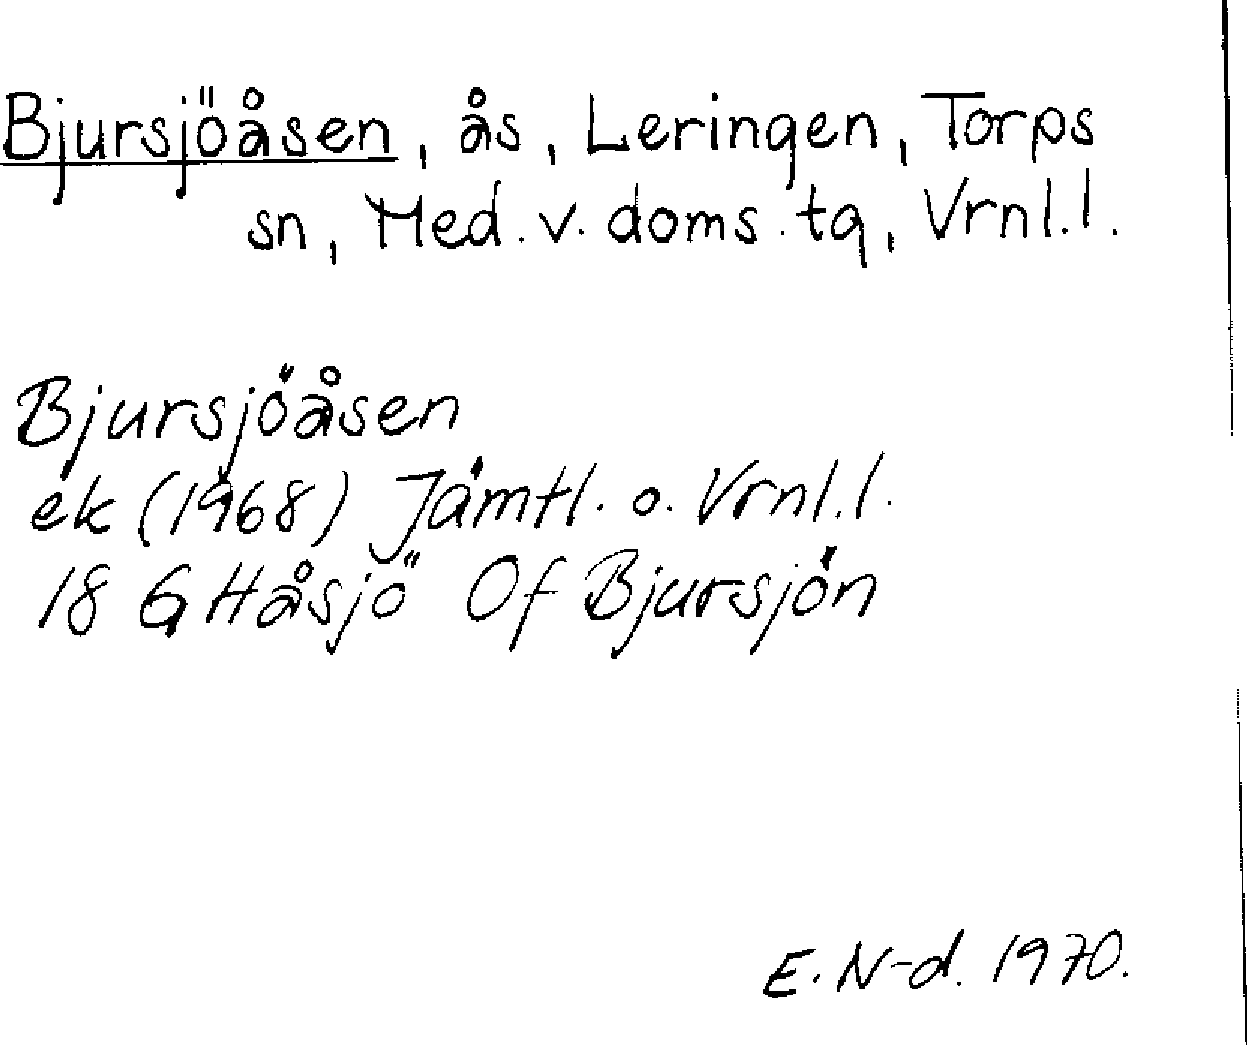 Bjursjöåsen, ås, Leringen, Torps
sn, Med. v. doms. tg, Vrnl.l.
Bjursjöåsen
ek (1968) Jämtl. o. Vrnl.l.
18 G Håsjö Of Bjursjön
E. N-d. 1970.